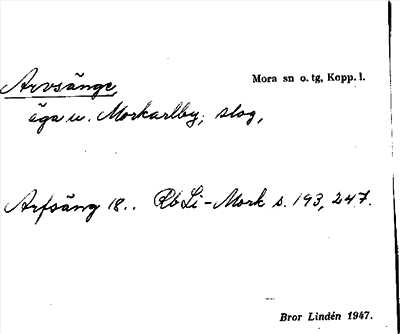 Arvsänge, Mora sn o. tg, Kopp. l.
äga u. Morkarlby, slog,
Arfsäng 18.. Rb Li-Mork s. 193, 247.
Bror Lindén 1947.